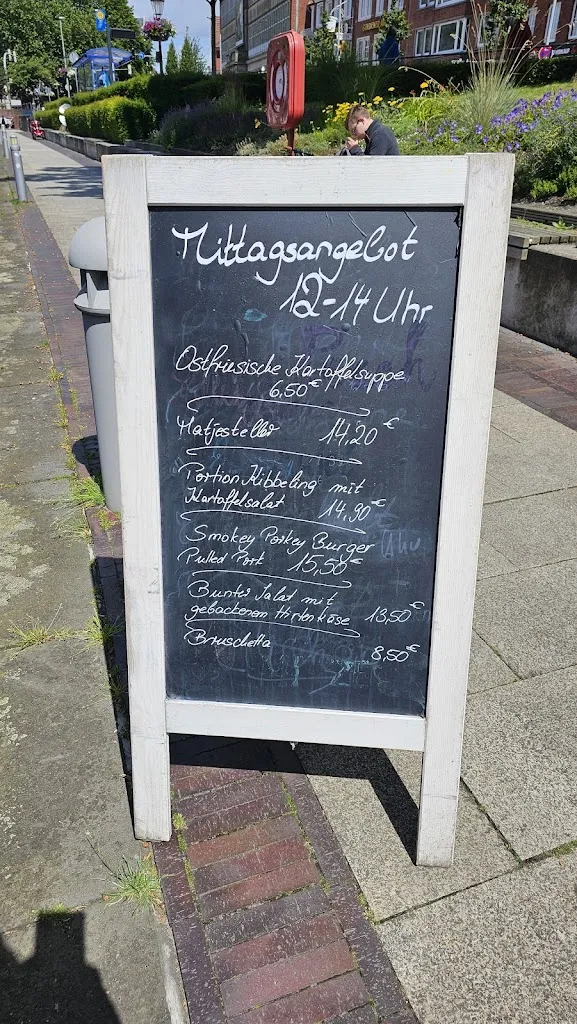 Mittagsangebot
12-14 Uhr
Ostfriesische Kartoffelsuppe
6,50€
Matjesteller 14,20€
Portion Kibbeling mit
Kartoffelsalat 14,90€
Smokey Porkey Burger
Pulled Pork 15,50€
Bunter Salat mit
gebackenem Hirtenkäse 13,50€
Bruschetta 8,50€